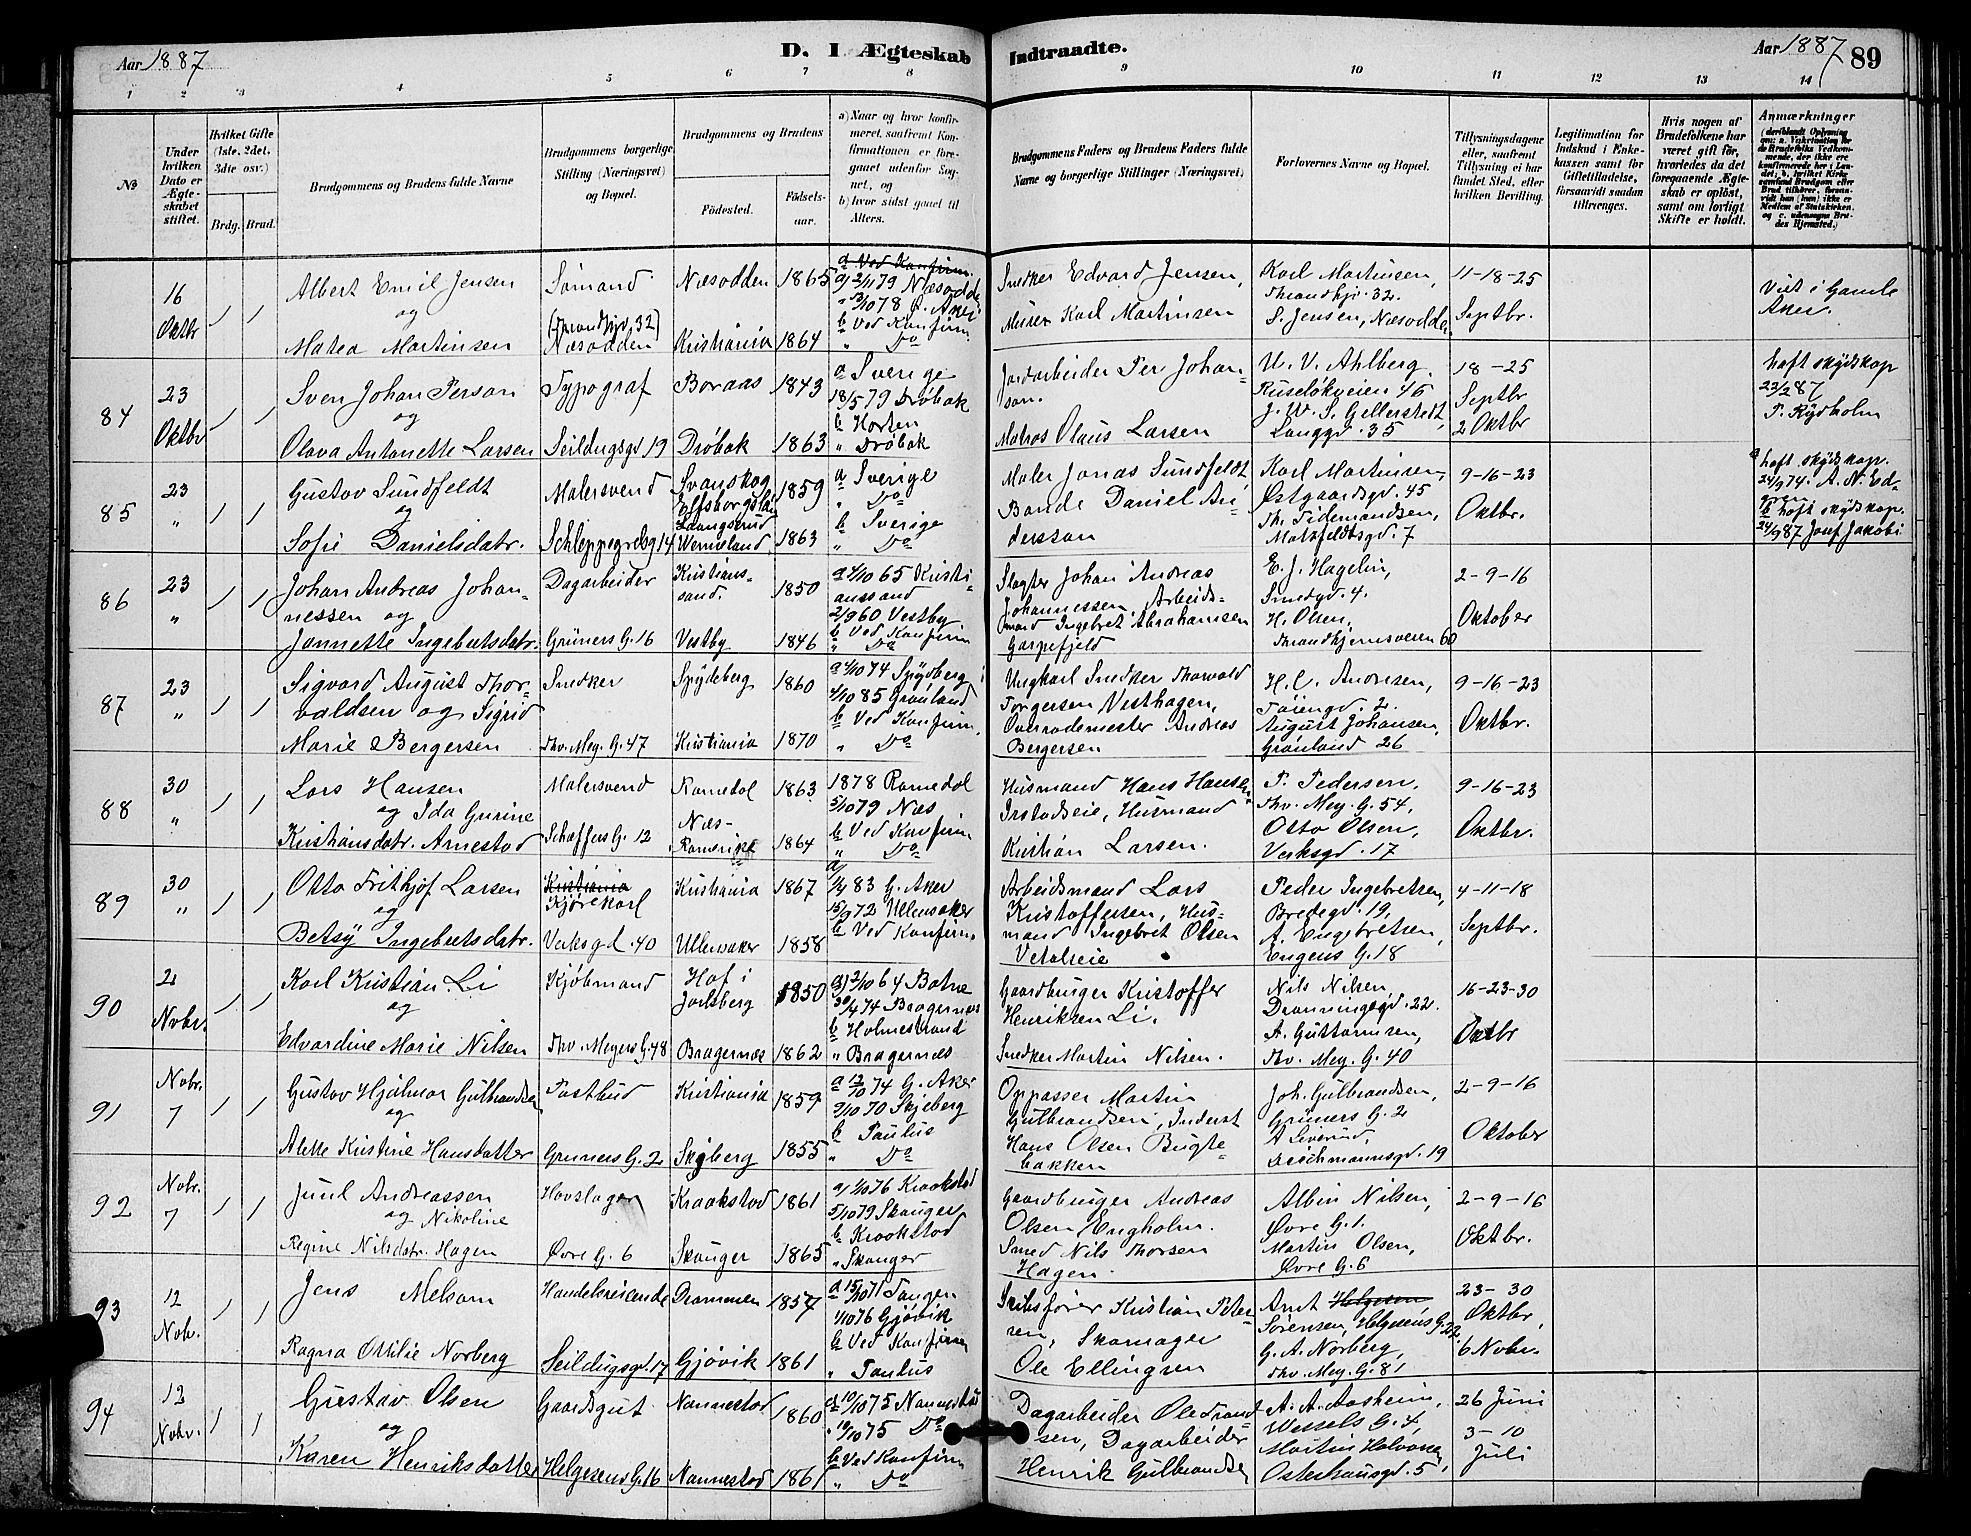 Aar 1887
D. I Ægteskab Indtraadte.
Aar 1887 89
1 2 3 4 5 6 7 8 9 10 11 12 13 14
No
Under hvilken Dato er Ægteskabet stiftet.
Hvilket Gifte (1ste, 2det, 3die osv.)
Brdg. Brud.
Brudgommens og Brudens fulde Navne
Brudgommens borgerlige Stilling (Næringsvei) og Bopæl.
Brudgommens og Brudens
Fødested. Fødselsaar.
a) Naar og hvor konfirmeret, saafremt Konfirmationen er foregaaet udenfor Sognet, og
b) hvor sidst gaaet til Alters.
Brudgommens Faders og Brudens Faders fulde Navne og borgerlige Stillinger (Næringsvei)
Forlovernes Navne og Bopæl.
Tillysningsdagene eller, saafremt Tillysning ei har fundet Sted, efter hvilken Bevilling.
Legitimation for Indskud i Enkekassen samt for Giftetilladelse, forsaavidt saadan tiltrænges.
Hvis nogen af Brudefolkene har været gift før, hvorledes da det foregaaende Ægteskab er opløst, samt om lovligt Skifte er holdt.
Anmærkninger
16 Oktbr
1 1
Albert Emil Jensen
og
Matea Martinsen
Sømand
(Thrandhjv. 32)
Næsodden
Næsodden 1865
Kristiania 1864
a Ved Konfirm.
a) 2/11 79 Næsodden
" 3/10 78 G. Aker
b Ved Konfirm.
" Do
Snedker Edvard Jensen,
Murer Karl Martinsen
Karl Martinsen,
Thrandhjv. 32.
S. Jensen, Næsodden
11-18-25
Septbr.
Viet i Gamle
Aker.
84
23 Oktbr
1 1
Sven Johan Person
og
Olava Antonette Larsen
Typograf
Seildugsgd 19
Boraas 1843
Drøbak 1863
a Sverige
18/5 79 Drøbak
b Horten
" Drøbak
Jordarbeider Per Johanson.
Matros Olaus Larsen
U. V. Ahlberg,
Ruseløkveien 46
J. W. S. Gellerstedt,
Langgd. 35
18-25
Septbr
2 Oktbr
haft skydskop
23/2 87
P. Rydholm
85
23 "
1 1
Gustov Sundfeldt
og
Sofie Danielsdatr.
Malersvend
Schleppegrelsg 14
Svanskog
Elfsborgslän 1859
Langserud
Wermeland 1863
a Sverige
" Do
b Sverige
" Do
Maler Jonas Sundfeldt,
Bonde Daniel Andersson
Karl Martinsen,
Østgaardsgd. 45
Th. Tidemandsen,
Motzfeldtsgd. 7
9-16-23
Oktbr.
a haft skydskop.
24/9 74. A. N. Edgren
b haft skydskop.
24/9 87 Josef Jakobi
86
23 "
1 1
Johan Andreas Johannessen og
Jannette Ingebretsdatr.
Dagarbeider
Grüners G. 16
Kristianssand. 1850
Vestby 1846
a 1/10 65 Kristianssand
2/9 60 Vestby
b Ved Konfirm
" Do
Slagter Johan Andreas
Johannessen, Arbeidsmand Ingebret Abrahamsen
Garpefjeld
E. J. Hagelin,
Smedgd. 4.
H. Olsen,
Thrandhjemsveien 60
2-9-16
Oktober
87
23 "
1 1
Sigvard August Thorvaldsen og Sigrid
Marie Bergersen
Snedker
Thv. Mey. G. 47
Spydeberg 1860
Kristiania 1870
a 4/10 74 Spydberg
4/10 85 Grønland
b Ved Konfirm.
" Do
Ungkarl Snedker Thorwald
Torgersen Vesthagen,
Overrodemester Andreas
Bergersen
H. C. Andresen,
Tøiengd. 2.
August Johansen,
Grønland 26
9-16-23
Oktbr.
88
30 "
1 1
Lars Hansen
og Ida Gurine
Kristiansdatr. Arnestad
Malersvend
Schæffers G. 12
Romedal 1863
Næs-
Romerike 1864
1878 Romedal
5/10 79 Næs
b Ved Konfirm
" Do
Husmand Hans Hansen
Irstadseie, Husmand
Kristian Larsen.
P. Pedersen,
Thv. Mey. G. 54,
Otto Olsen,
Verksgd. 17
9-16-23
Oktbr.
89
30 "
1 1
Otto Frithjof Larsen
og
Betsy Ingebretsdatr.
Kristiania
Kjørekarl
Verksgd. 40
Kristiania 1867
Ullensaker 1858
a) 1/4 83 G. Aker
15/9 72 Ullensaker
b Ved Konfirm
Arbeidsmand Lars
Kristoffersen, Husmand Ingebret Olsen
Vetaleie
Peder Ingebretsen,
Bredegd. 19,
A. Engebretsen,
Engens G. 18
4-11-18
Septbr.
90
2 Nobr.
1 1
Karl Kristian Li
og
Edvardine Marie Nilsen
Kjøbmand
Thv. Meyers G. 48
Hof i
Jarlsberg 1850
Bragernæs 1862
a) 2/10 64 Botne
30/4 74 Bragernæs
b Holmestrand
" Bragernæs
Gaardbruger Kristoffer
Henriksen Li.
Snedker Martin Nilsen.
Nils Nilsen
Dronningegd. 22.
A. Guttormsen,
Thv. Mey. G. 40
16-23-30
Oktbr
91
Nobr. 7
1 1
Gustav Hjalmar Gulbrandsen
og
Alette Kristine Hansdatter
Postbud
Gruners G. 2
Kristiania 1859
Skjeberg 1855
a 12/10 74 G. Aker
9/10 70 Skjeberg
b Paulus
" Do
Oppasser Martin
Gulbrandsen, Inderst
Hans Olsen Bugtebakken
Joh. Gulbrandsen,
Grüners G. 2
A Siverud,
Deichmannsgd. 19
2-9-16
Oktober
92
Nobr. 7
1 1
Juul Andreassen
og Nikoline
Regine Nilsdatr. Hagen
Hovslager
Øvre G. 6
Kraakstad 1861
Skauger 1865
a) 1/10 76 Kraakstad
5/10 79 Skauger
b Kraakstad
" Skauger
Gaardbruger Andreas
Olsen Engholm.
Smed Nils Thorsen
Hagen.
Albin Nilsen,
Øvre G. 1.
Martin Olsen,
Øvre G. 6
2-9-16
Oktbr.
93
12 Nobr.
1 1
Jens Melsom
Ragna Ottilie Norberg
Handelsreisende
Seildugsgd. 17
Drammen 1857
Gjøvik 1861
a 15/10 71 Tangen
1/10 76 Gjøvik
b Ved Konfirm
" Paulus
Skibsfører Kristian Petersen, Skomager
Ole Ellingsen
Arnt Helgesen
Sørensen, Helgesens G. 22.
G. A. Norberg,
Thv. Mey. G. 81
23-30
Oktbr,
6 Nobr.
94
12 Nobr.
1 1
Gustav Olsen
og
Karen Henriksdatter
Gaardsgut
Helgesens G. 16
Nannestad 1860
Nannestad 1861
a 10/10 75 Nannestad
" 10/10 75 Do
b Ved Konfirm
" Do
Dagarbeider Ole Trondsen, Dagarbeider
Henrik Gulbrandsen
A. A. Aasheim,
Wessels G. 4,
Martin Halvorsen,
Osterhausgd. 5
26 Juni
3-10
Juli